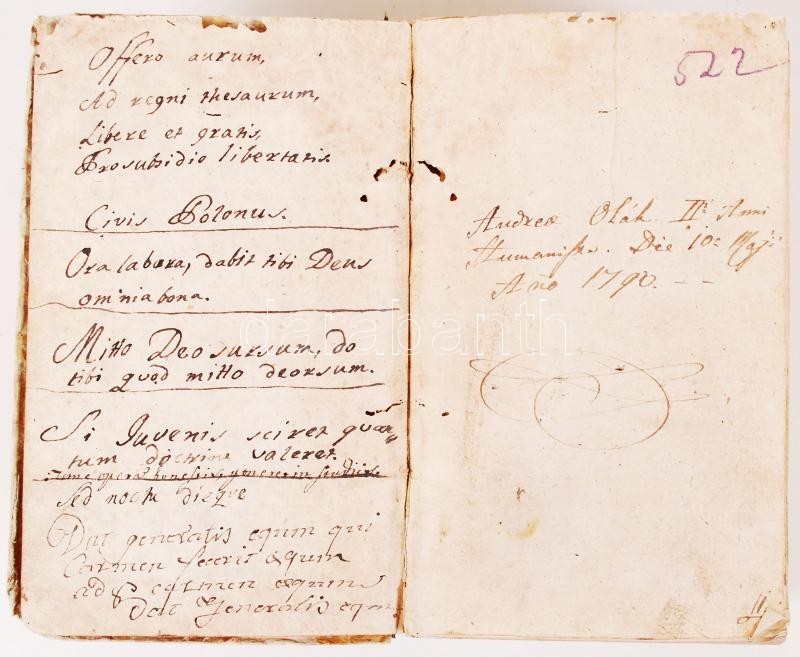 Offero aurum,
Ad regni thesaurum,
Libere et gratis,
Prosubsidio libertatis
Civis Polonus.
Ora labora, dabit tibi Deus
omnia bona.
Mitto Deo sursum, do
tibi quod mitto deorsum.
Si Juvenis sciret quan„
tum doctrina valeret.
Sed noctu dieque
Dat generalis equm qui
Carmen fecerit equm
ad carmen equum
Dat Generalis eqm
522
Andreæ Oláh II. Anni
Humanistæ. Die 10a Maji
Ano 1790. - -
darabanth